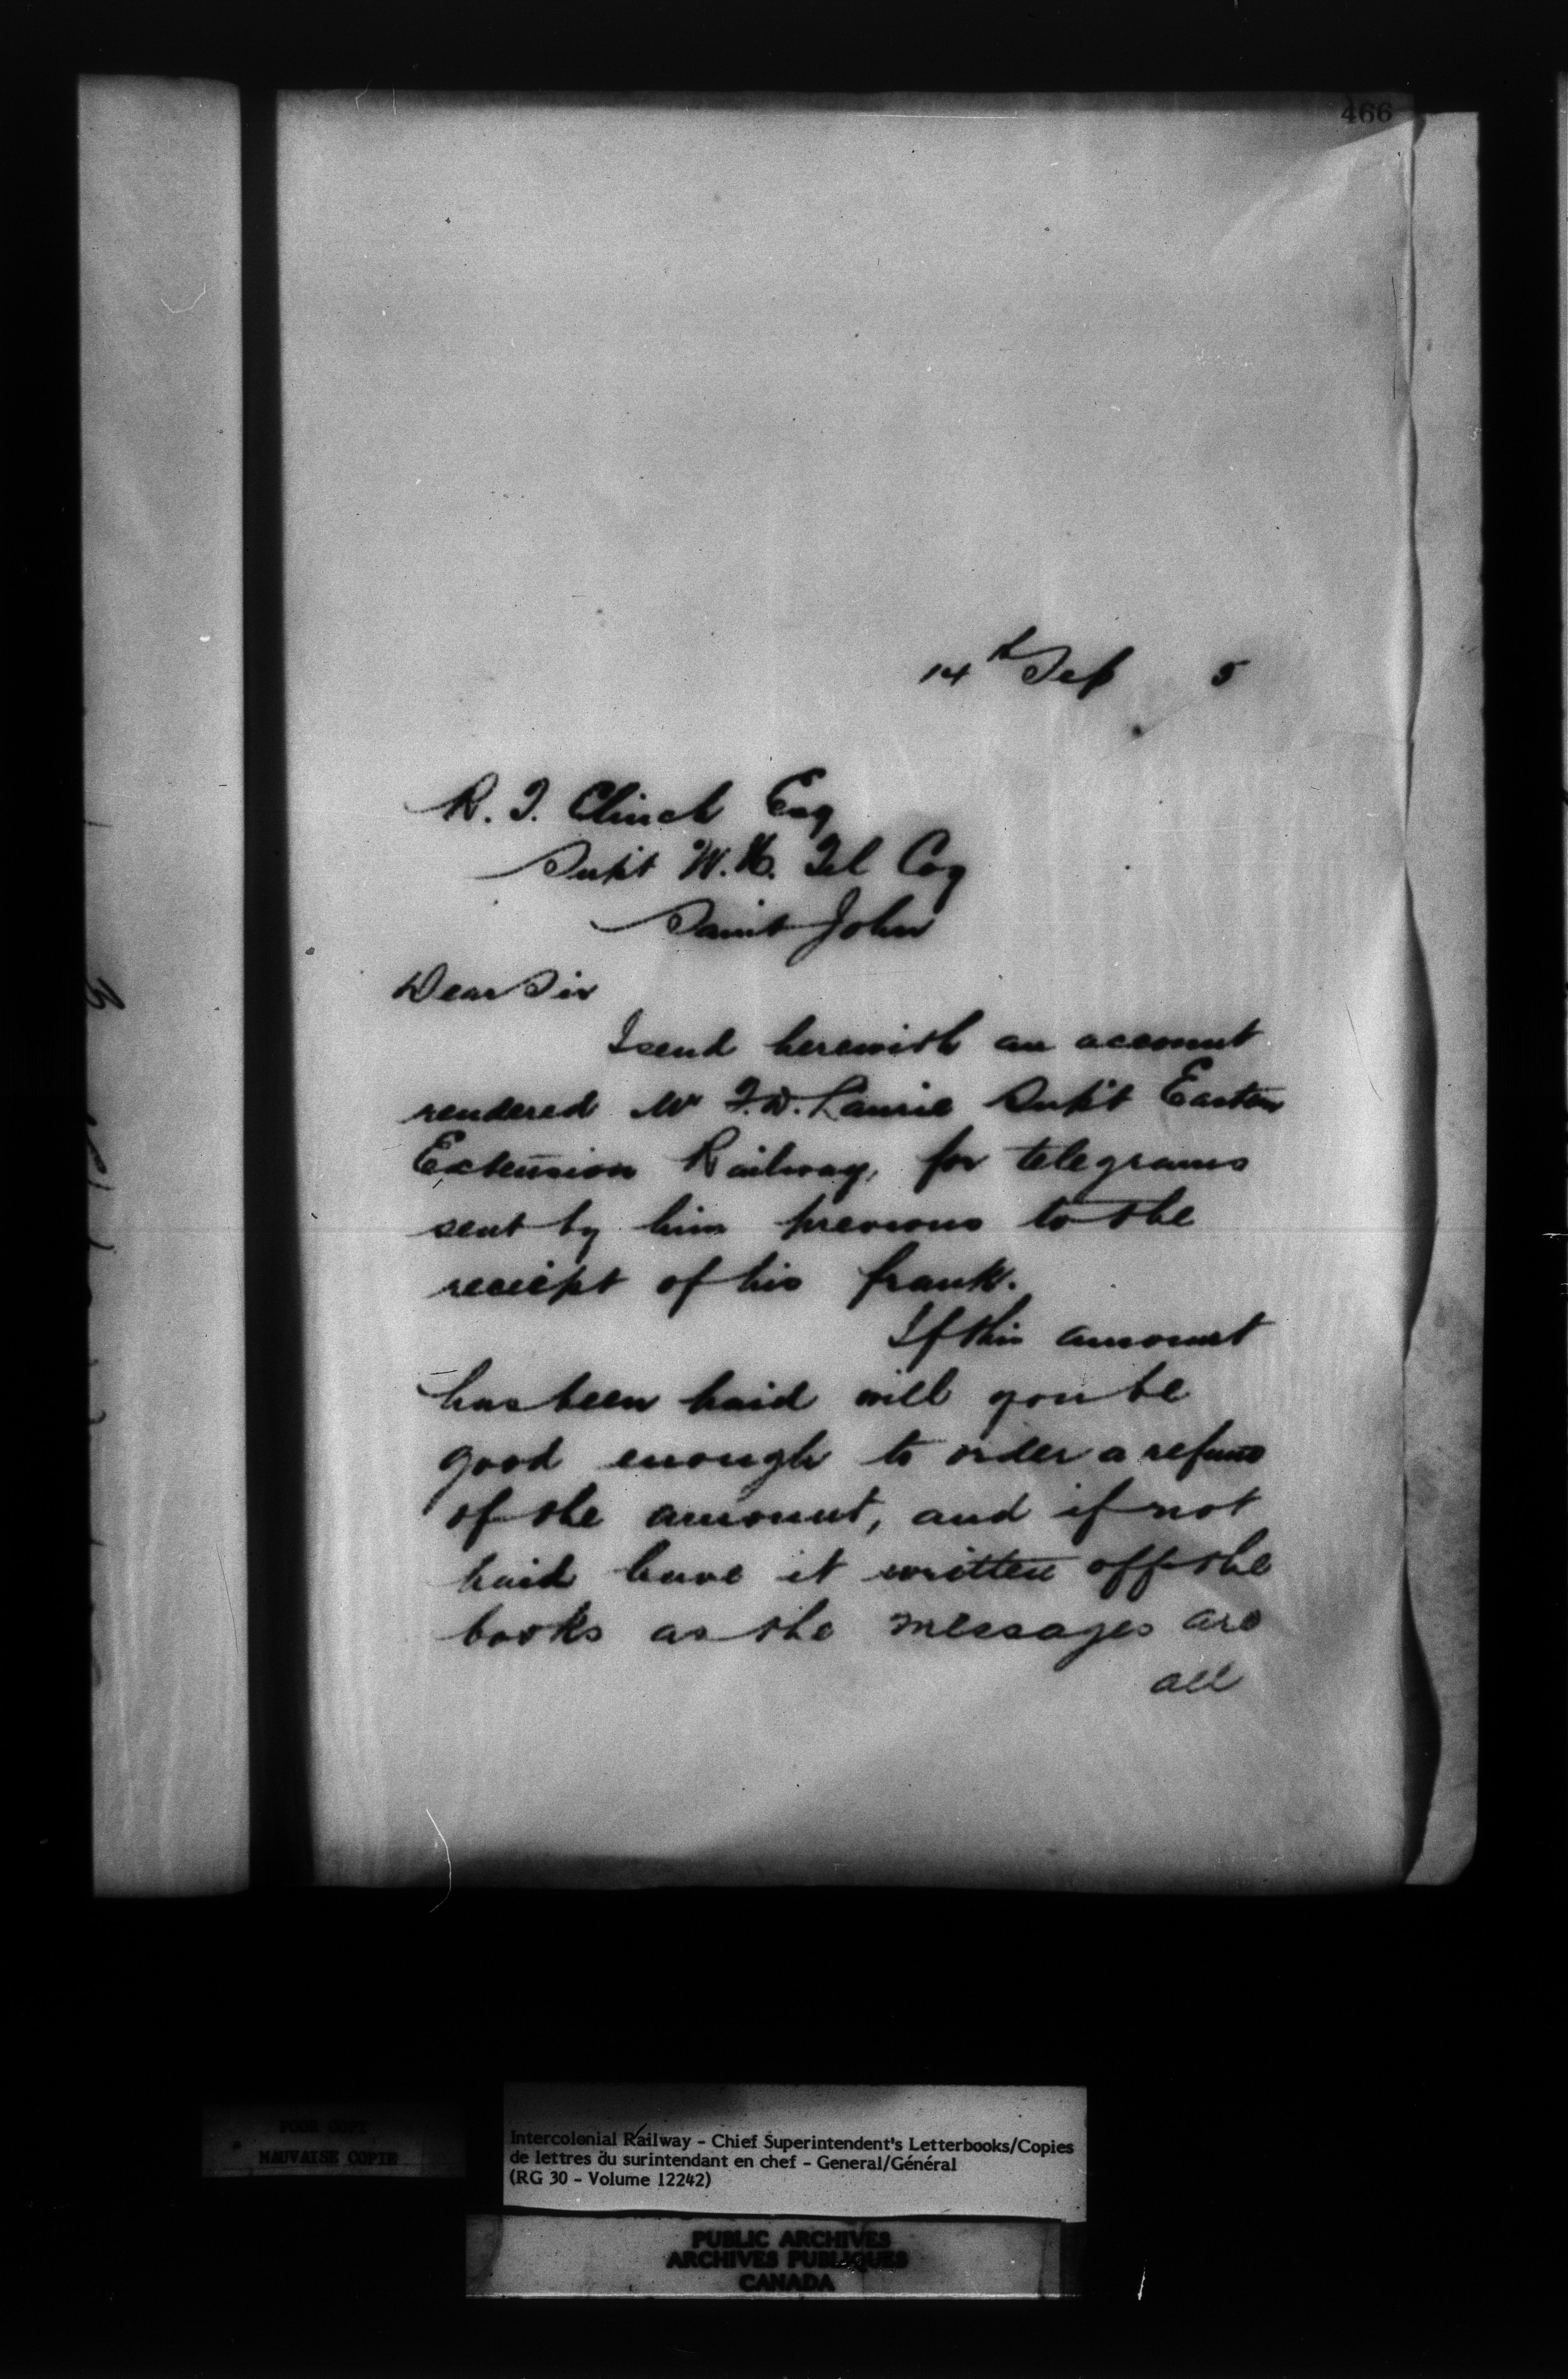 466
14th Sep 5
R. T. Clinch Esq
Supt W. U. Tel Coy
Saint John
Dear Sir
I send herewith an account
rendered Mr F. W. Laurie Supt Eastern
Extension Railway, for telegrams
sent by him previous to the
receipt of his frank.
If this amount
has been paid will you be
good enough to order a refund
of the amount, and if not
paid have it written off the
books as the messages are
all
POOR COPY
MAUVAISE COPIE
Intercolonial Railway - Chief Superintendent's Letterbooks/Copies
de lettres du surintendant en chef - General/Général
(RG 30 - Volume 12242)
PUBLIC ARCHIVES
ARCHIVES PUBLIQUES
CANADA